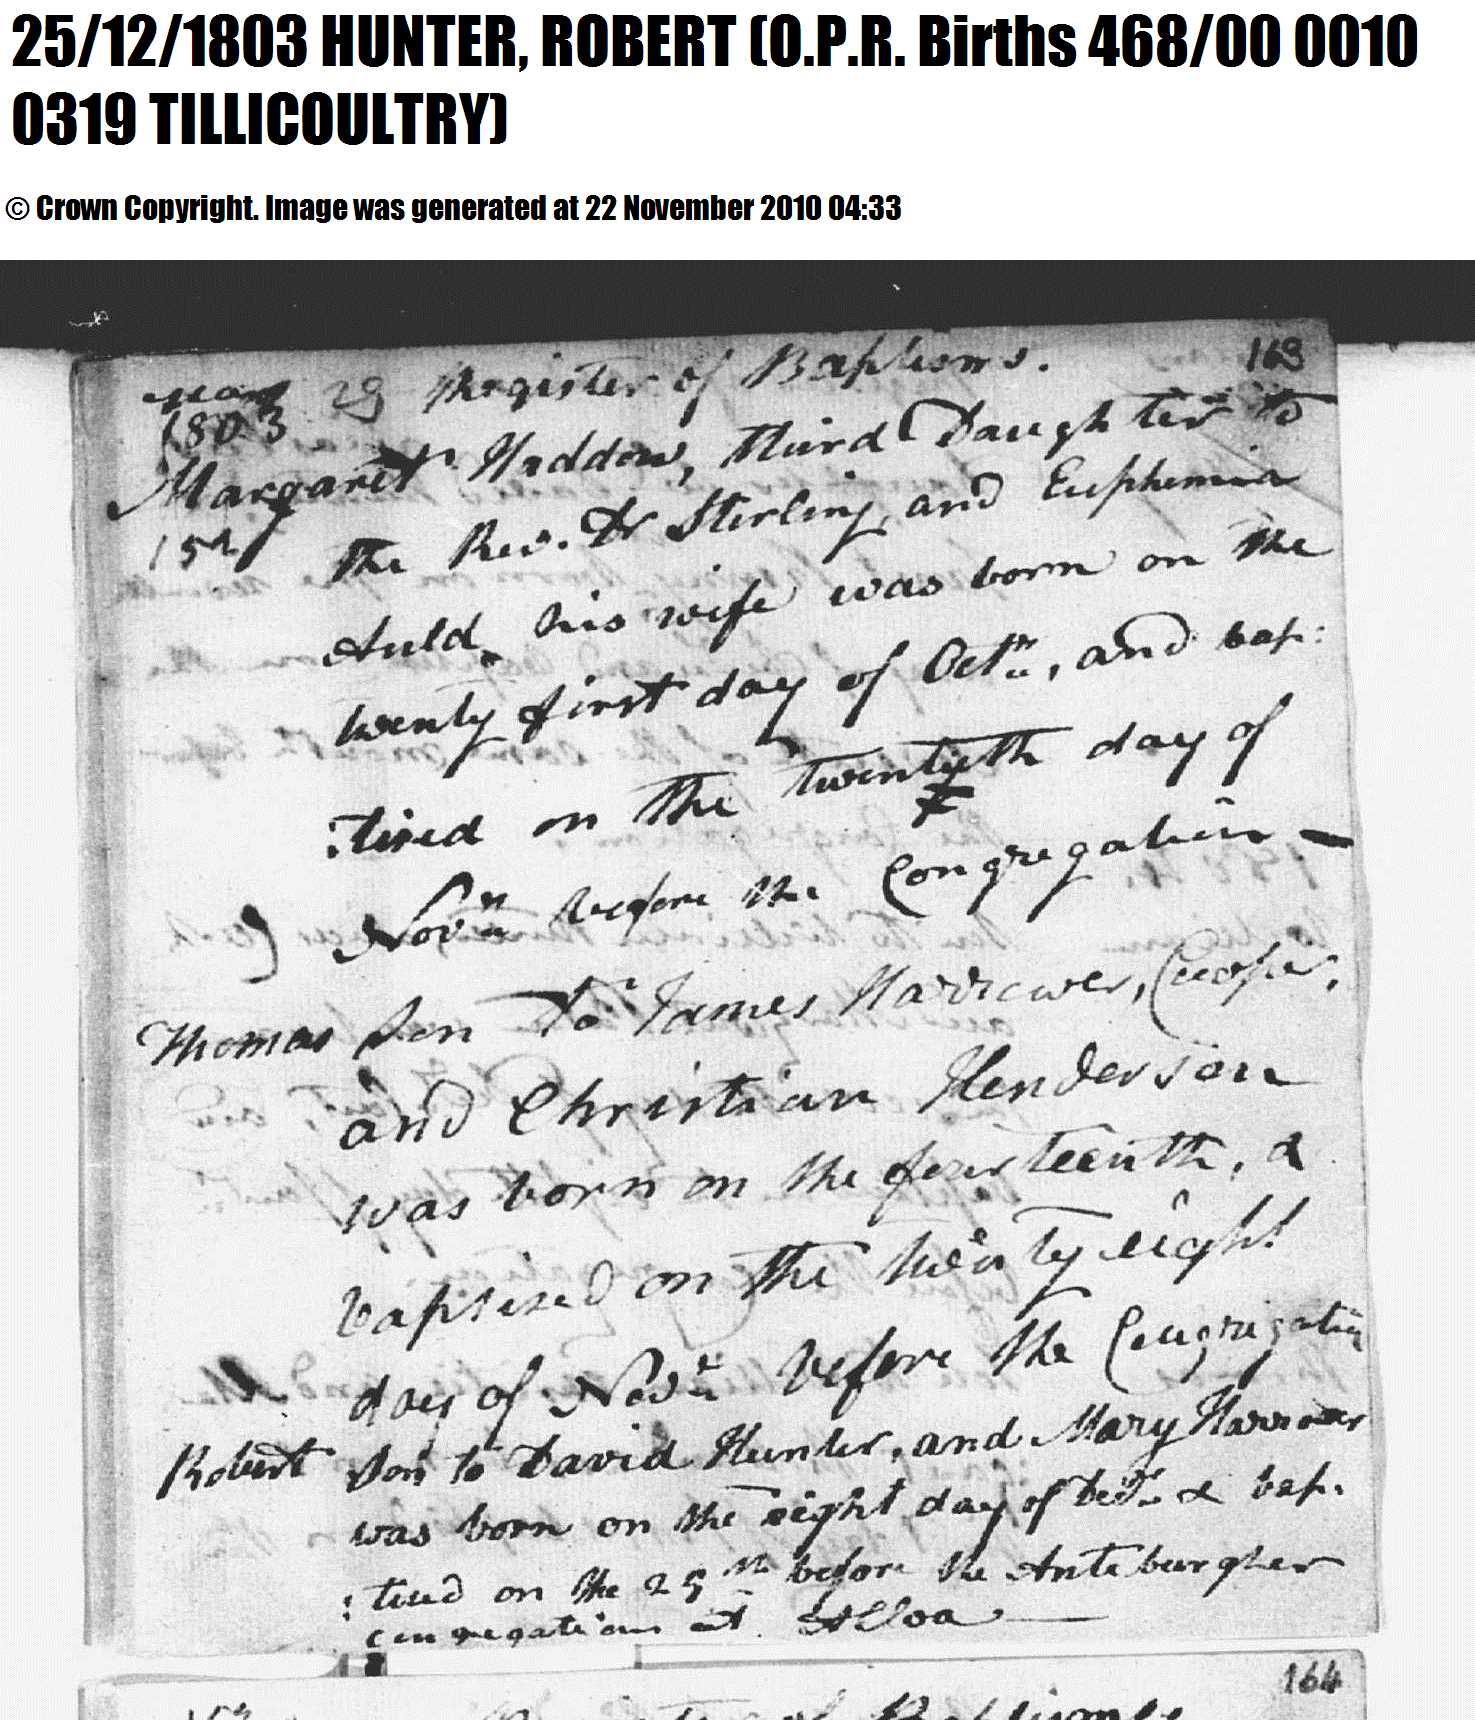 25/12/1803 HUNTER, ROBERT (O.P.R. Births 468/00 0010
0319 TILLICOULTRY)
© Crown Copyright. Image was generated at 22 November 2010 04:33
29 Register of Baptisms. 163
1803
Margaret Haddow, third Daughter to
the Rev. Dr Stirling, and Euphemia
Auld, his wife was born on the
twenty first day of Octr, and bap:
:tised on the twentyth day of
Novr before the Congregation —
Thomas Son to James Harrower, Cooper,
and Christian Henderson
was born on the fourteenth, &
baptised on the twenty eight
day of Novr before the Congregation
Robert Son to David Hunter, and Mary Harrower
was born on the eight day of Decr & bap:
:tised on the 25th before the Anteburgher
congregation at Alloa —
164